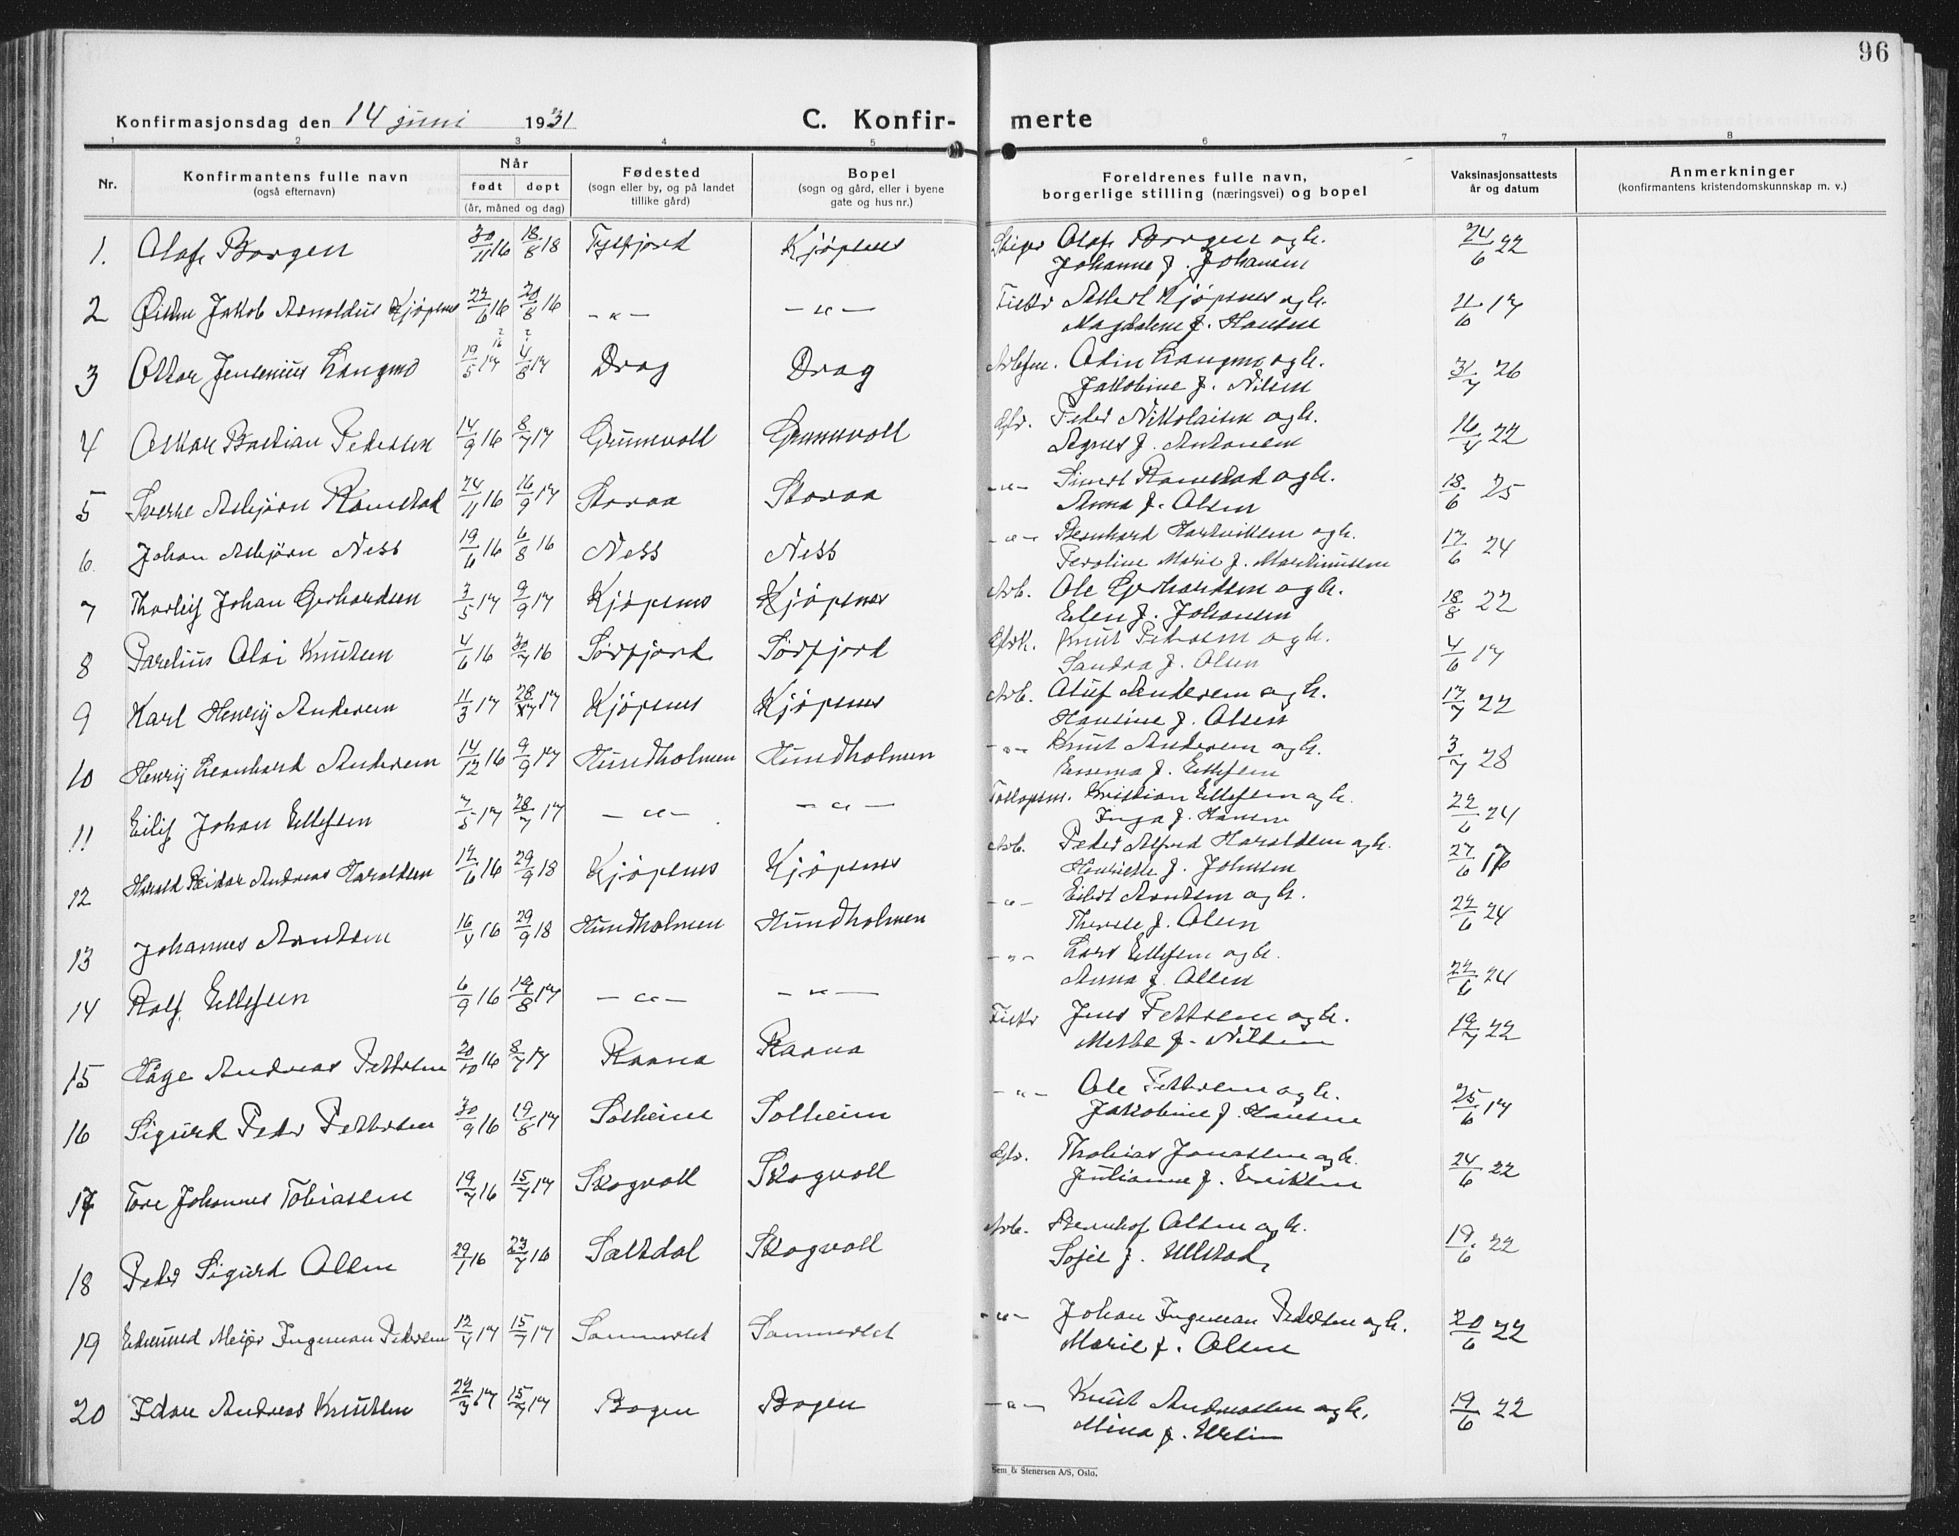 96
Konfirmasjonsdag den 14 juni 1931
C. Konfirmerte
1 2 3 4 5 6 7 8
Nr.
Konfirmantens fulle navn
(også efternavn)
Når
født døpt
(år, måned og dag)
Fødested
(sogn eller by, og på landet
tillike gård)
Bopel
(sogn og gård, eller i byene
gate og hus nr.)
Foreldrenes fulle navn,
borgerlige stilling (næringsvei) og bopel
Vaksinasjonsattests
år og datum
Anmerkninger
(konfirmantens kristendomskunnskap m. v.)
1. Olaf Borgen 30/11 16 18/8 18 Tysfjord Kjøpsnes Olaf Borgen og h. 24/6 22
Johanna f. Johansen
2 Jakob Arnoldus Kjøpsnes 22/6 16 20/8 16 -"- -"- Fisker Albert Kjøpsnes og h. 11/6 17
Magdalene f. Hansen
3 Ottar Jensenius Langmo 19/5 17 4/8 17 Drag Drag Odin Langmo og h. 31/7 26
Jakobine f. Nilsen
4 Oskar Bastian Pedersen 14/9 16 8/7 17 Grunnvoll Grunnvoll Gbr. Peder Nikolaisen og h. 16/4 22
Agnes f. Antonsen
5 Sverre Asbjørn Ramstad 24/11 16 16/9 17 Storaa Storaa -"- Sivert Ramstad og h. 18/6 25
Anna f. Olsen
6. Johan Asbjørn Ness 19/6 16 6/8 16 Ness Ness -"- Bernhard Hartviksen og h. 17/6 24
Peroline Marie f. Martinussen
7 Thorleif Johan Gerhardsen 3/5 17 9/9 17 Kjøpsnes Kjøpsnes Arb. Ole Gerhardsen og h. 18/8 22
Elen f. Johansen
8 Parelius Olai Knutsen 4/6 16 30/7 16 Sørfjord Sørfjord Knut Pedersen og h. 4/6 17
Sandra f. Olsen
9 Karl Henry Andersen 11/3 17 28/7 17 Kjøpsnes Kjøpsnes Arb. Oluf Andersen og h. 17/7 22
Hansine f. Olsen
10 Henry Leonhard Andersen 14/12 16 9/9 17 Hundholmen Hundholmen -"- Knut Andersen og h. 3/7 28
Emma f. Ellefsen
11 Eilif Johan Ellefsen 7/5 17 28/7 17 -"- -"- Kristian Ellefsen og h. 22/6 24
Inga f. Hansen
12 Harald Reidar Andreas Haraldsen 17/6 16 29/9 18 Kjøpsnes Kjøpsnes Arb. Peder Alfred Haraldsen og h. 27/6 17
Henriette f. Johnsen
13 Johannes Arntsen 16/4 16 29/9 18 Hundholmen Hundholmen -"- Eilert Arntsen og h. 22/6 24
Therese f. Olsen
14 Rolf Ellefsen 6/9 16 19/8 17 -"- -"- -"- Lars Ellefsen og h. 22/6 24
Anna f. Olsen
15 Håge Andreas Pettersen 20/10 16 8/7 17 Raana Raana Fisker Jens Pettersen og h. 19/7 22
Mette f. Nilsen
16 Sigurd Peder Pettersen 30/9 16 19/8 17 Solheim Solheim -"- Ole Pettersen og h. 25/6 17
Jakobine f. Hansen
17 Tore Johannes Tobiassen 19/7 16 15/7 17 Skogvoll Skogvoll Gbr. Thobias Jonassen og h. 24/6 22
Julianne f. Eriksen
18 Peder Sigurd Olsen 29/1 16 23/7 16 Saltdal Skogvoll Arb. Bernhof Olsen og h. 19/6 22
Sofie f. Ulstad,
19 Edmund Meier Ingeman Pedersen 12/4 17 15/7 17 Sommerset Sommerset -"- Johan Ingeman Pedersen og h. 20/6 22
Marie f. Olsen
20 Idar Andreas Knutsen 22/3 17 15/7 17 Bogen Bogen -"- Knut Andreassen og h. 19/6 22
Mina f.
Sem & Stenersen A/S, Oslo.